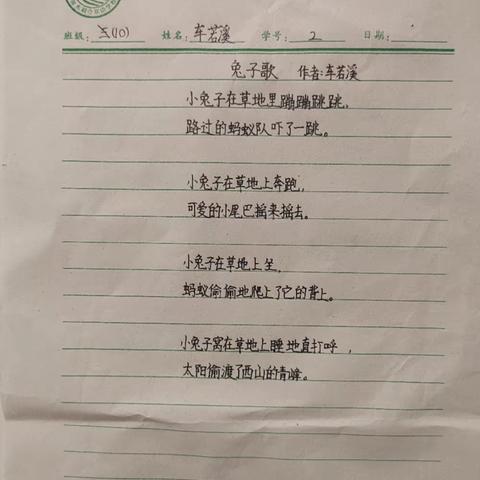 班级: 五(10) 姓名: 车若溪 学号: 2 日期:
兔子歌 作者:车若溪
小兔子在草地里蹦蹦跳跳,
路过的蚂蚁队吓了一跳。
小兔子在草地上奔跑,
可爱的小尾巴摇来摇去。
小兔子在草地上坐,
蚂蚁偷偷地爬上了它的背上。
小兔子窝在草地上睡地直打呼,
太阳偷渡了西山的青峰。